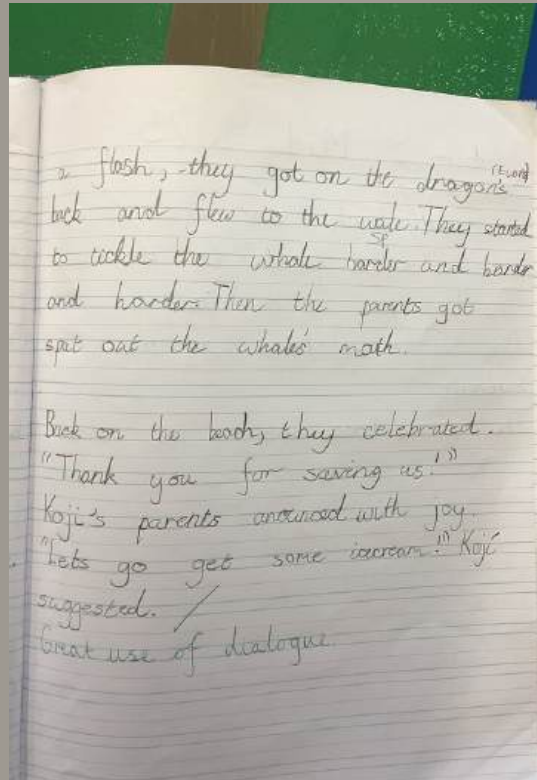 a flash, they got on the dragon's
back and flew to the wale. They started
sp
to tickle the whale harder and harder
and harder. Then the parents got
spat out the whale's moth.
Back on the beach, they celebrated.
"Thank you for saving us!"
Koji's parents anounced with joy.
"Lets go get some icecream!" Koji
suggested. /
Great use of dialogue.